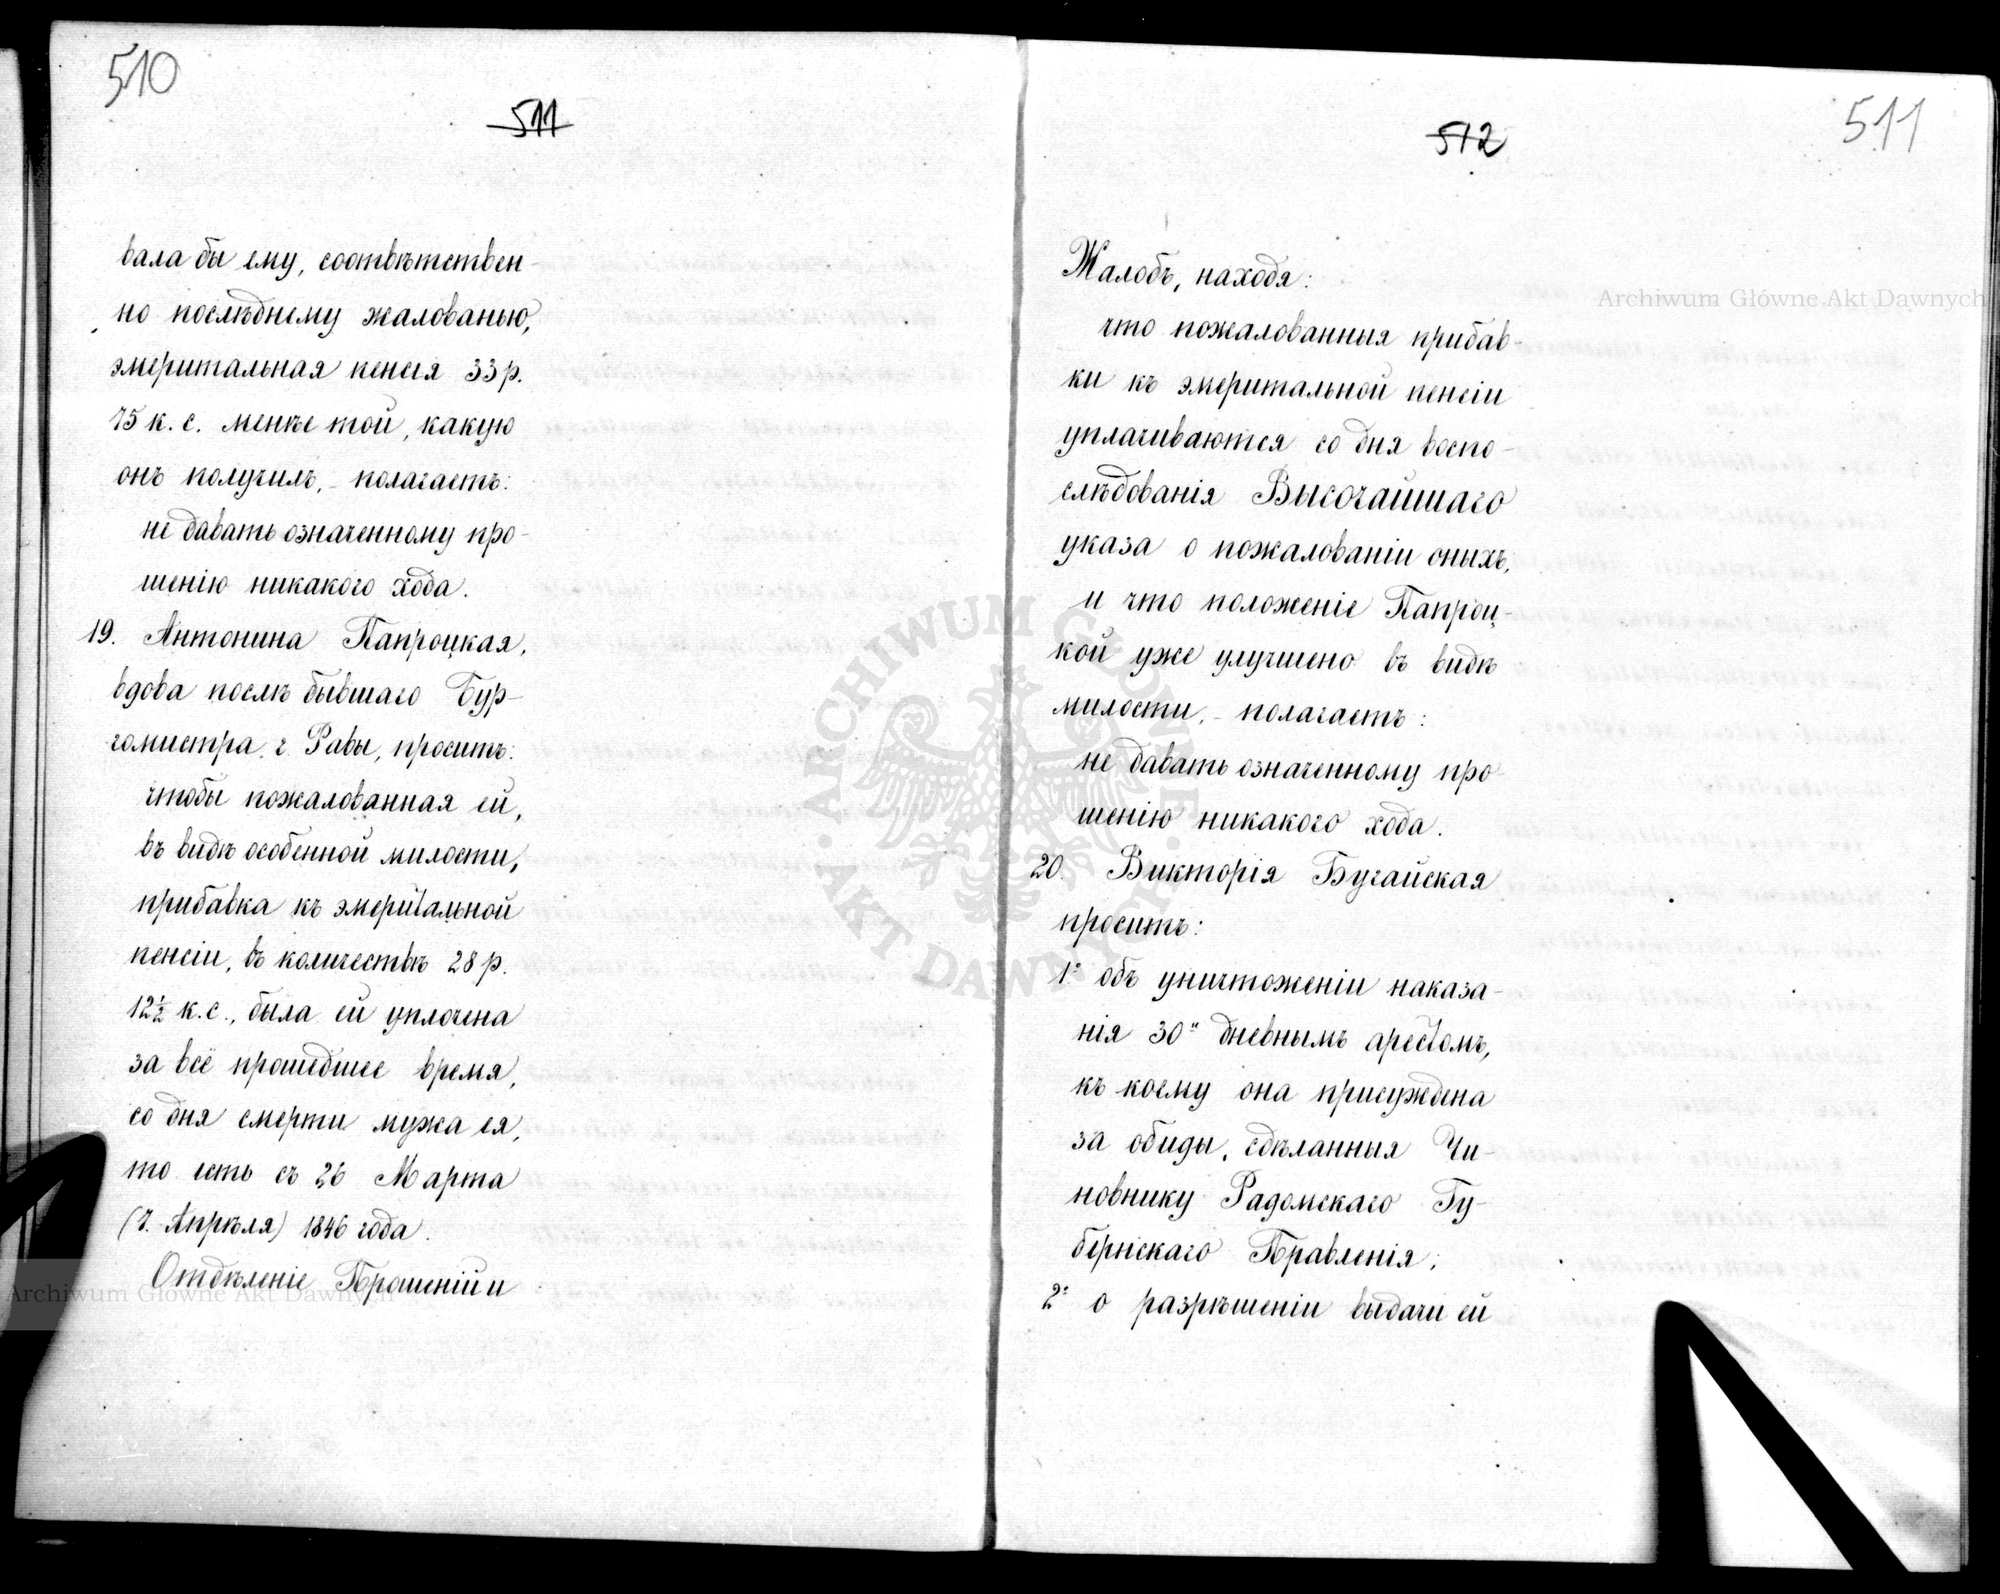 510
511
вала бы ему, соотвѣтствен-
но послѣднему жалованью,
эмеритальная пенсія 33 р.
75 к. с. менѣе той, какую
онъ получилъ, - полагаетъ:
не давать означенному про-
шенію никакого хода.
19. Антонина Папроцкая,
вдова послѣ бывшаго Бур-
гомистра г. Равы, проситъ:
чтобы пожалованная ей,
въ видѣ особенной милости,
прибавка къ эмеритальной
пенсіи, въ количествѣ 28 р.
12½ к. с., была ей уплочена
за всё прошедшее время,
со дня смерти мужа ея,
то есть съ 26 Марта
(7. Апрѣля) 1846 года.
Отдѣленіе Прошеній и
Archiwum Główne Akt Dawnych
511
512
Жалобъ, находя:
Archiwum Główne Akt Dawnych
что пожалованныя прибав-
ки къ эмеритальной пенсіи
уплачиваются со дня воспо-
слѣдованія Высочайшаго
указа о пожалованіи оныхъ,
и что положеніе Папроц-
кой уже улучшено въ видѣ
милости, - полагаетъ:
не давать означенному про-
шенію никакого хода.
20. Викторія Бугайская
проситъ:
1º объ уничтоженіи наказа-
нія 30и дневнымъ арестомъ,
къ коему она присуждена
за обиды, сдѣланныя Чи-
новнику Радомскаго Гу-
бернскаго Правленія;
2º о разрѣшеніи выдачи ей
ARCHIWUM GŁÓWNE
AKT DAWNYCH